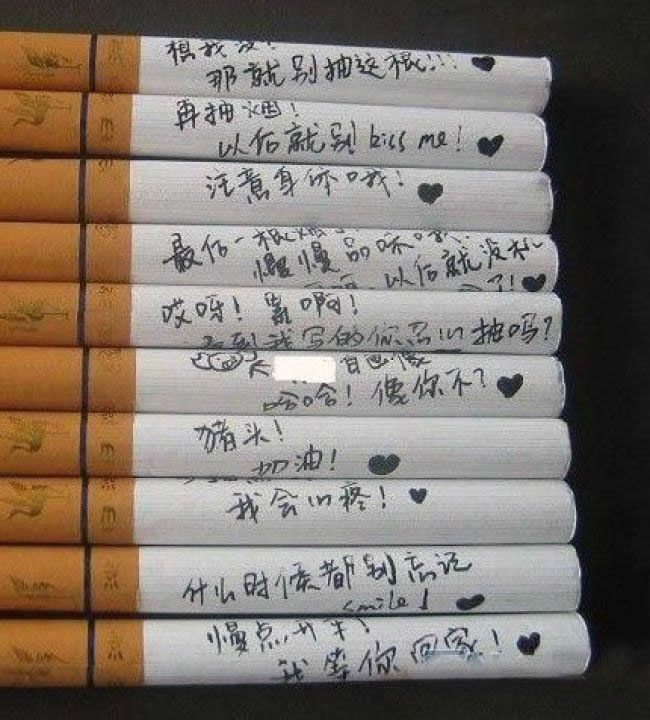 想我没!
那就别抽这根!!!
再抽烟!
以后就别kiss me!
注意身体哦!
最后一根烟
慢慢品味哦
以后就没机
了!
哎呀! 累啊!
看到我写的你忍心抽吗?
自画像
哈哈! 像你不?
猪头!
加油!
我会心疼!
什么时候都别忘记
smile!
慢点开车!
我等你回家!